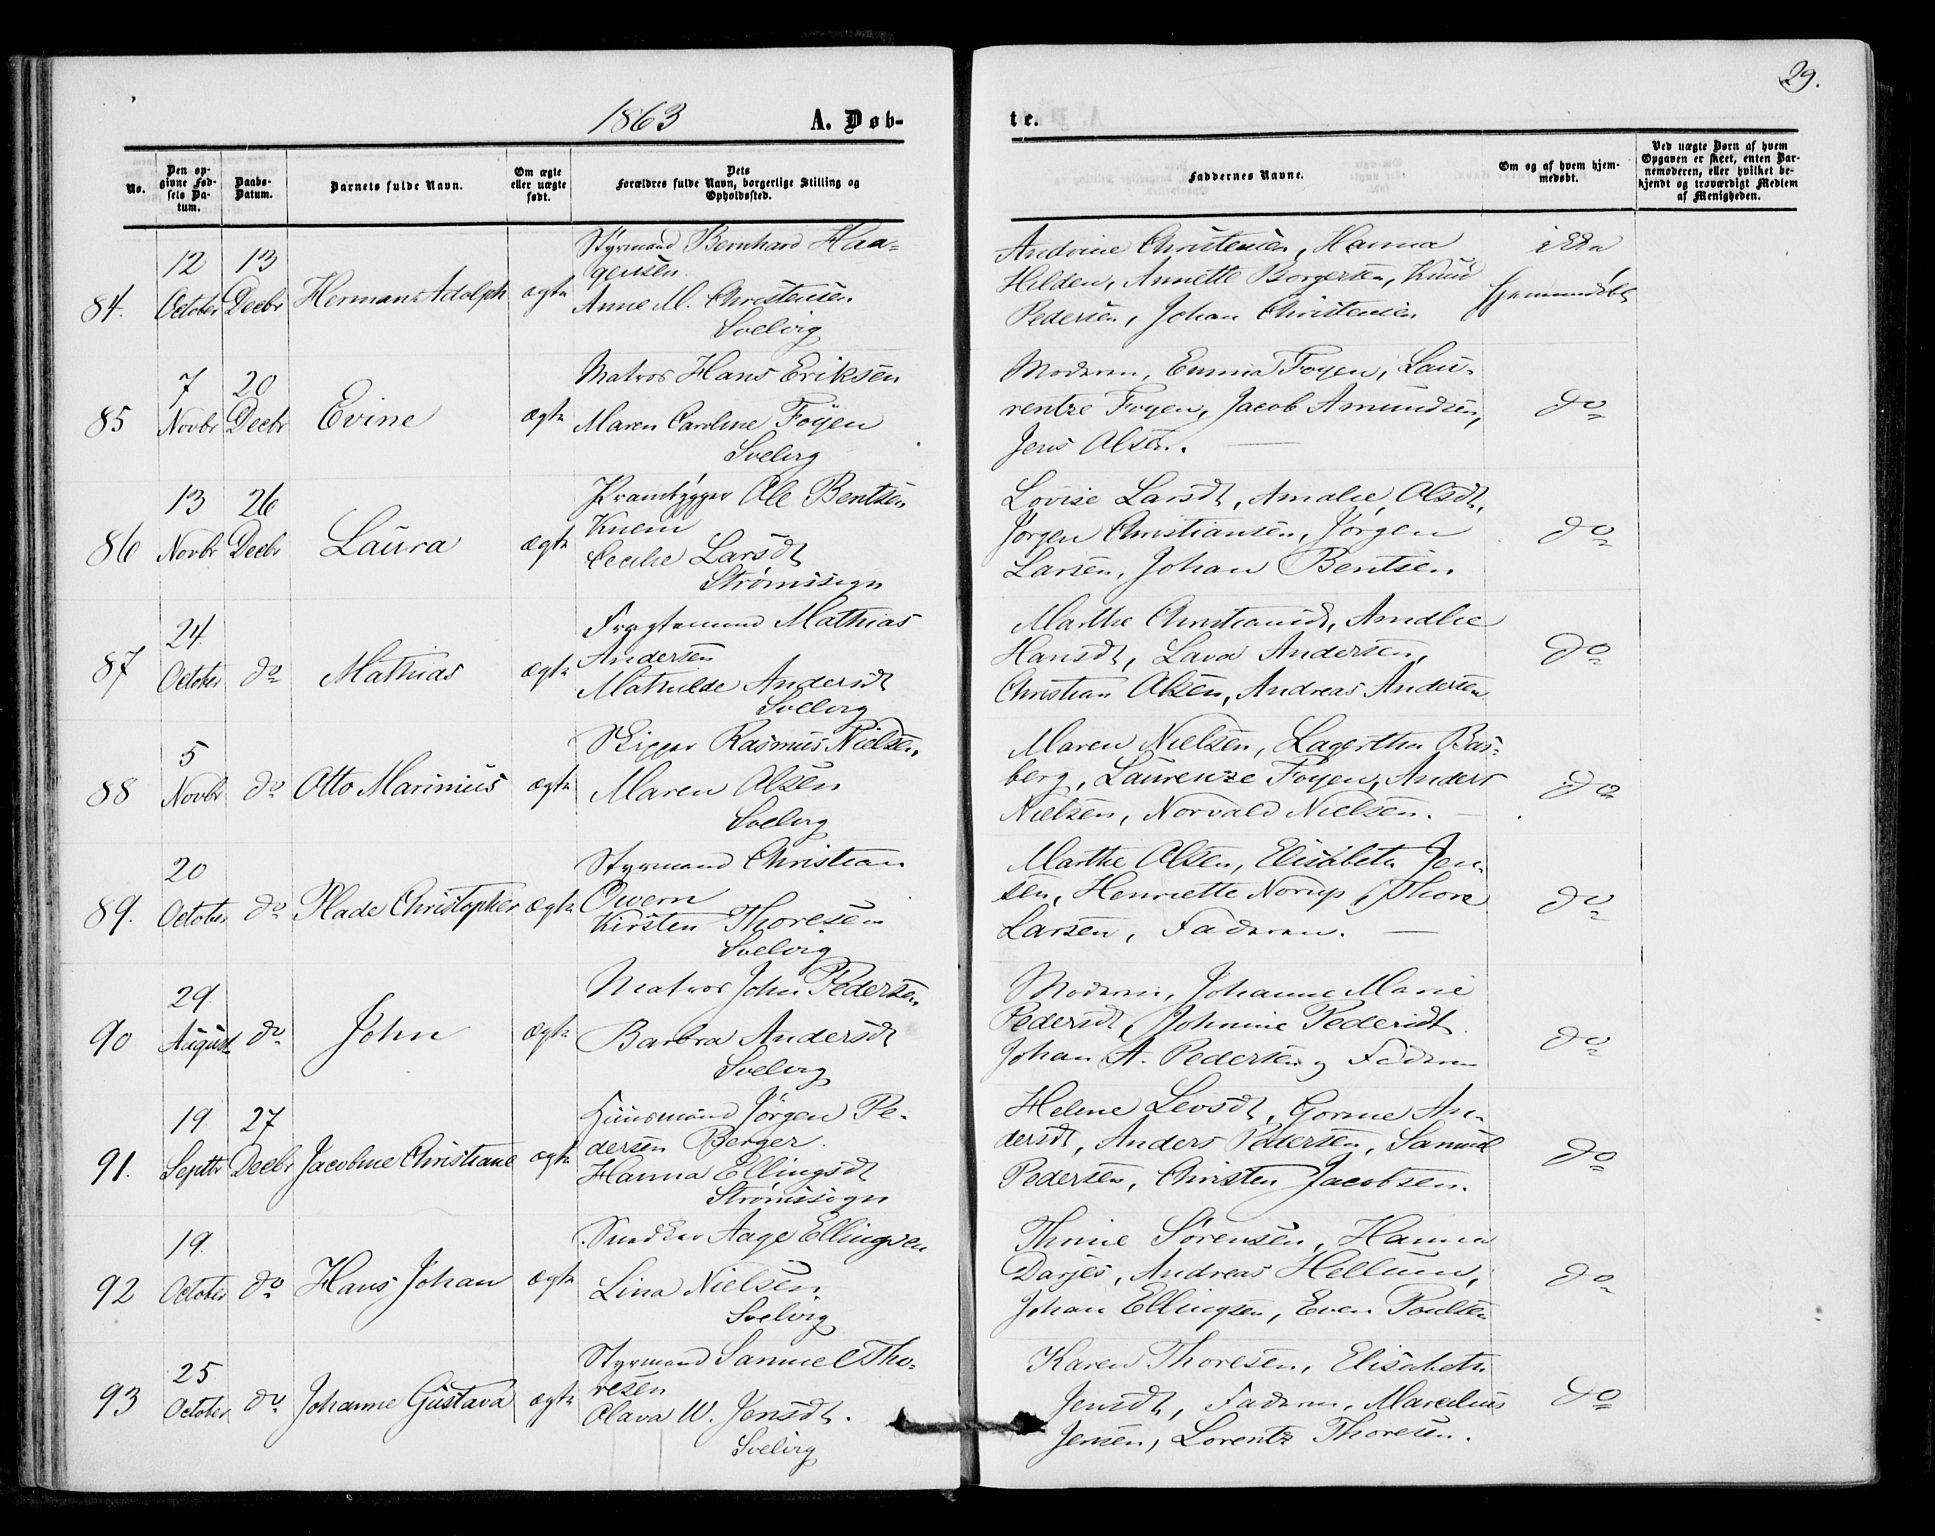 29.
1863 A. Døb-
te.
No.
Den op-
givne Fød-
sels Da-
tum.
Daabs-
Datum.
Barnets fulde Navn.
Om ægte
eller uægte
født.
Dets
Forældres fulde Navn, borgerlige Stilling og
Opholdssted.
Faddernes Navne.
Om og af hvem hjem-
medøbt.
Ved uægte Børn af hvem
Opgaven er skeet, enten Bar-
nemoderen, eller hvilket be-
kjendt og troværdigt Medlem
af Menigheden.
84.
12
October
13
Decbr
Herman Adolph
ægte
Styrmand Bernhard Haa-
gensen
Anne M. Christensen
Svelvig
Andrine Christensen, Hanna
Hilden, Annette Borgersen, Knud
Pedersen, Johan Christensen
ikke
hjemmedøbt
85
7
Novbr
20
Decbr
Evine
ægte
Matros Hans Eriksen
Maren Caroline Foyen
Svelvig
Moderen, Emma Foyen, Lau-
rentze Foyen, Jacob Amundsen,
Jens Olsen.
do
86
13
Novbr
26
Decbr
Laura
ægte
Prambygger Ole Bentsen
Knem
Cecilie Larsdt
Strømssogn
Lovise Larsdt, Amalie Olsdt,
Jørgen Christiansen, Jørgen
Larsen, Johan Bentsen.
do
87
24
October
do
Mathias
ægte
Fragtemand Mathias
Andersen
Mathilde Andersdt
Svelvig
Marthe Christiansdt, Amalie
Hansdt, Lava Andersen,
Christian Olsen, Andreas Andersen
do
88
5
Novbr
do
Otto Marinius
ægte
Skipper Rasmus Nielsen,
Maren Olsen
Svelvig
Maren Nielsen, Lagertha Bas-
berg, Laurenze Foyen, Anders
Nielsen, Norvald Nielsen.
do
89.
20
October
do
Plade Christopher
ægte
Styrmand Christian
Owern
Kirsten Thoresen
Svelvig
Marthe Olsen, Elisabeth Jen-
sen, Henriette Norup, Thore
Larsen, Faderen.
do
90
29
August
do
John
ægte
Matros John Pedersen
Barbra Andersdt
Svelvig
Moderen, Johanne Marie
Pedersdt, Johnine Pedersdt
Johan A. Pedersen og Faderen
do
91.
19.
Septbr
27
Decbr
Jacobine Christiane
ægte
Huusmand Jørgen Pe-
dersen Berger.
Hanna Ellingsdt
Strømssogn
Helene Levsdt, Gorine An-
dersdt, Anders Pedersen, Samuel
Pedersen, Christen Jacobsen.
do
92
19.
October
do
Hans Johan
ægte
Snedker Aage Ellingsen
Lina Nielsen
Svelvig
Thrine Sørensen, Hanna
Darjes, Andreas Hellum,
Johan Ellingsen, Even Poulsen
do
93
25
October
do
Johanne Gustava
ægte
Styrmand Samuel Tho-
resen
Olava W. Jensdt.
Svelvig
Karen Thoresen, Elisabeth
Jensdt, Faderen, Marcelius
Jensen, Lorentz Thoresen.
do